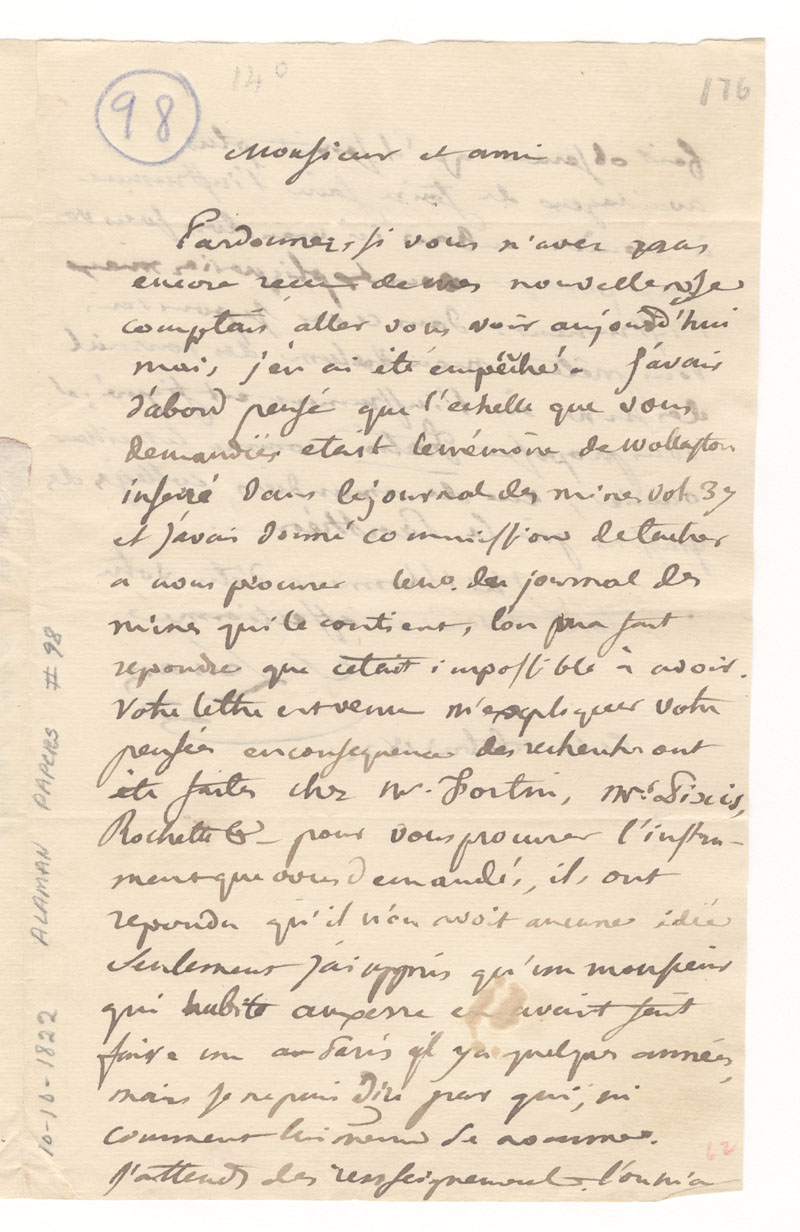 98
14º
176
Monsieur et ami
Pardonnez, si vous n'avez pas
encore reçu de mes nouvelles, je
comptais aller vous voir aujourd'hui
mais, j'en ai été empêché. J'avais
d'abord pensé que l'echelle que vous
demandiés etait le mémoire de Wollaston
inseré dans le journal des mines vol. 37
et j'avais donné commission de tacher
a vous procurer le no. du journal des
mines qui le contient, l'on m'a fait
repondre que cetait impossible à avoir.
Votre lettre est venue m'expliquer votre
pensée en consequence des recherches ont
été faites chez Mr. Fortin, Mrs. Pixis,
Rochette &c pour vous procurer l'instru-
ment que vous demandés, ils ont
repondu qu'il n'en avoit aucune idée
Seulement j'ai appris qu'un monsieur
qui habite auxerre en avait fait
faire un a Paris il y a quelques années,
mais je ne puis dire par qui, ni
comment lui même se nomme.
J'attends des renseignements. l'on m'a
62
10-10-1822 ALAMAN PAPERS #98